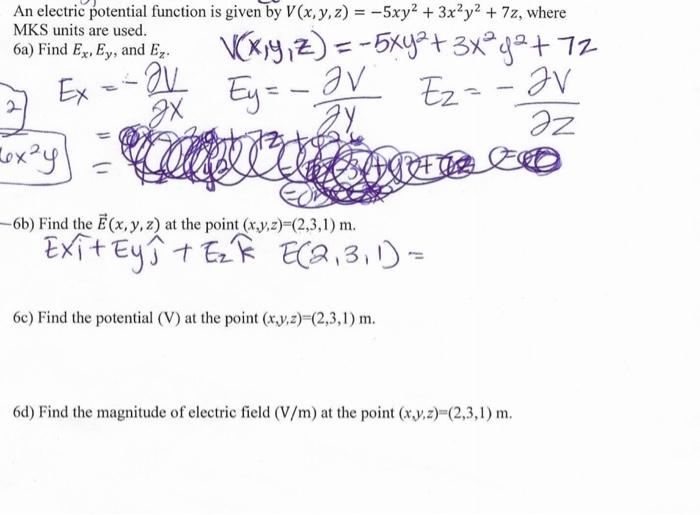 An electric potential function is given by V(x, y, z) = −5xy² + 3x²y² + 7z, where
MKS units are used.
6a) Find Eₓ, Eᵧ, and E_z.
V(x,y,z) = -5xy² + 3x²y² + 7z
Ex = - ∂V/∂x Ey = - ∂V/∂y Ez = - ∂V/∂z
2
6x²y
=
=
6b) Find the E⃗(x, y, z) at the point (x,y,z)=(2,3,1) m.
Exî + Eyĵ + Ezk̂ E(2,3,1) =
6c) Find the potential (V) at the point (x,y,z)=(2,3,1) m.
6d) Find the magnitude of electric field (V/m) at the point (x,y,z)=(2,3,1) m.